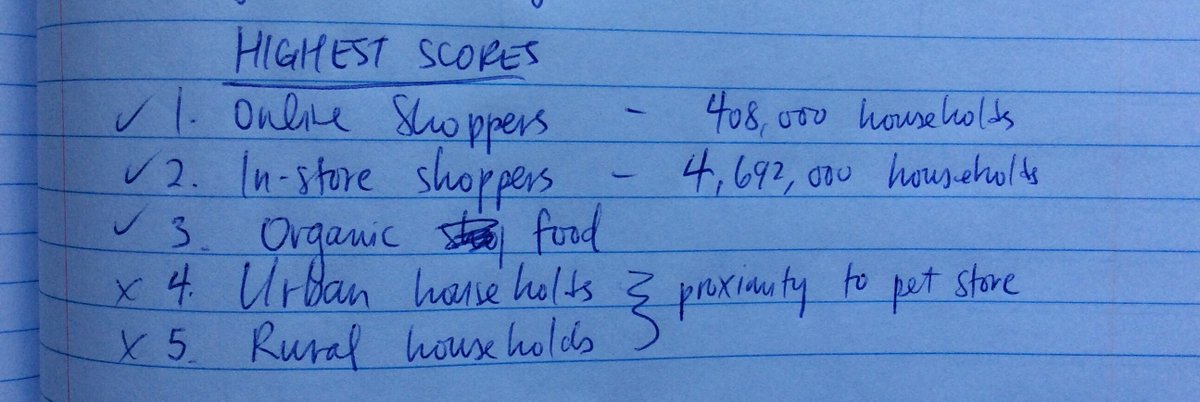 HIGHEST SCORES
✓ 1. Online Shoppers - 408,000 households
✓ 2. In-store shoppers - 4,692,000 households
✓ 3. Organic food
x 4. Urban households } proximity to pet store
x 5. Rural households